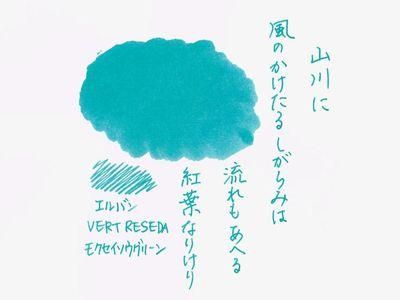 山川に
風のかけたるしがらみは
流れもあへる
紅葉なりけり
エルバン
VERT RESEDA
モクセイソウグリーン